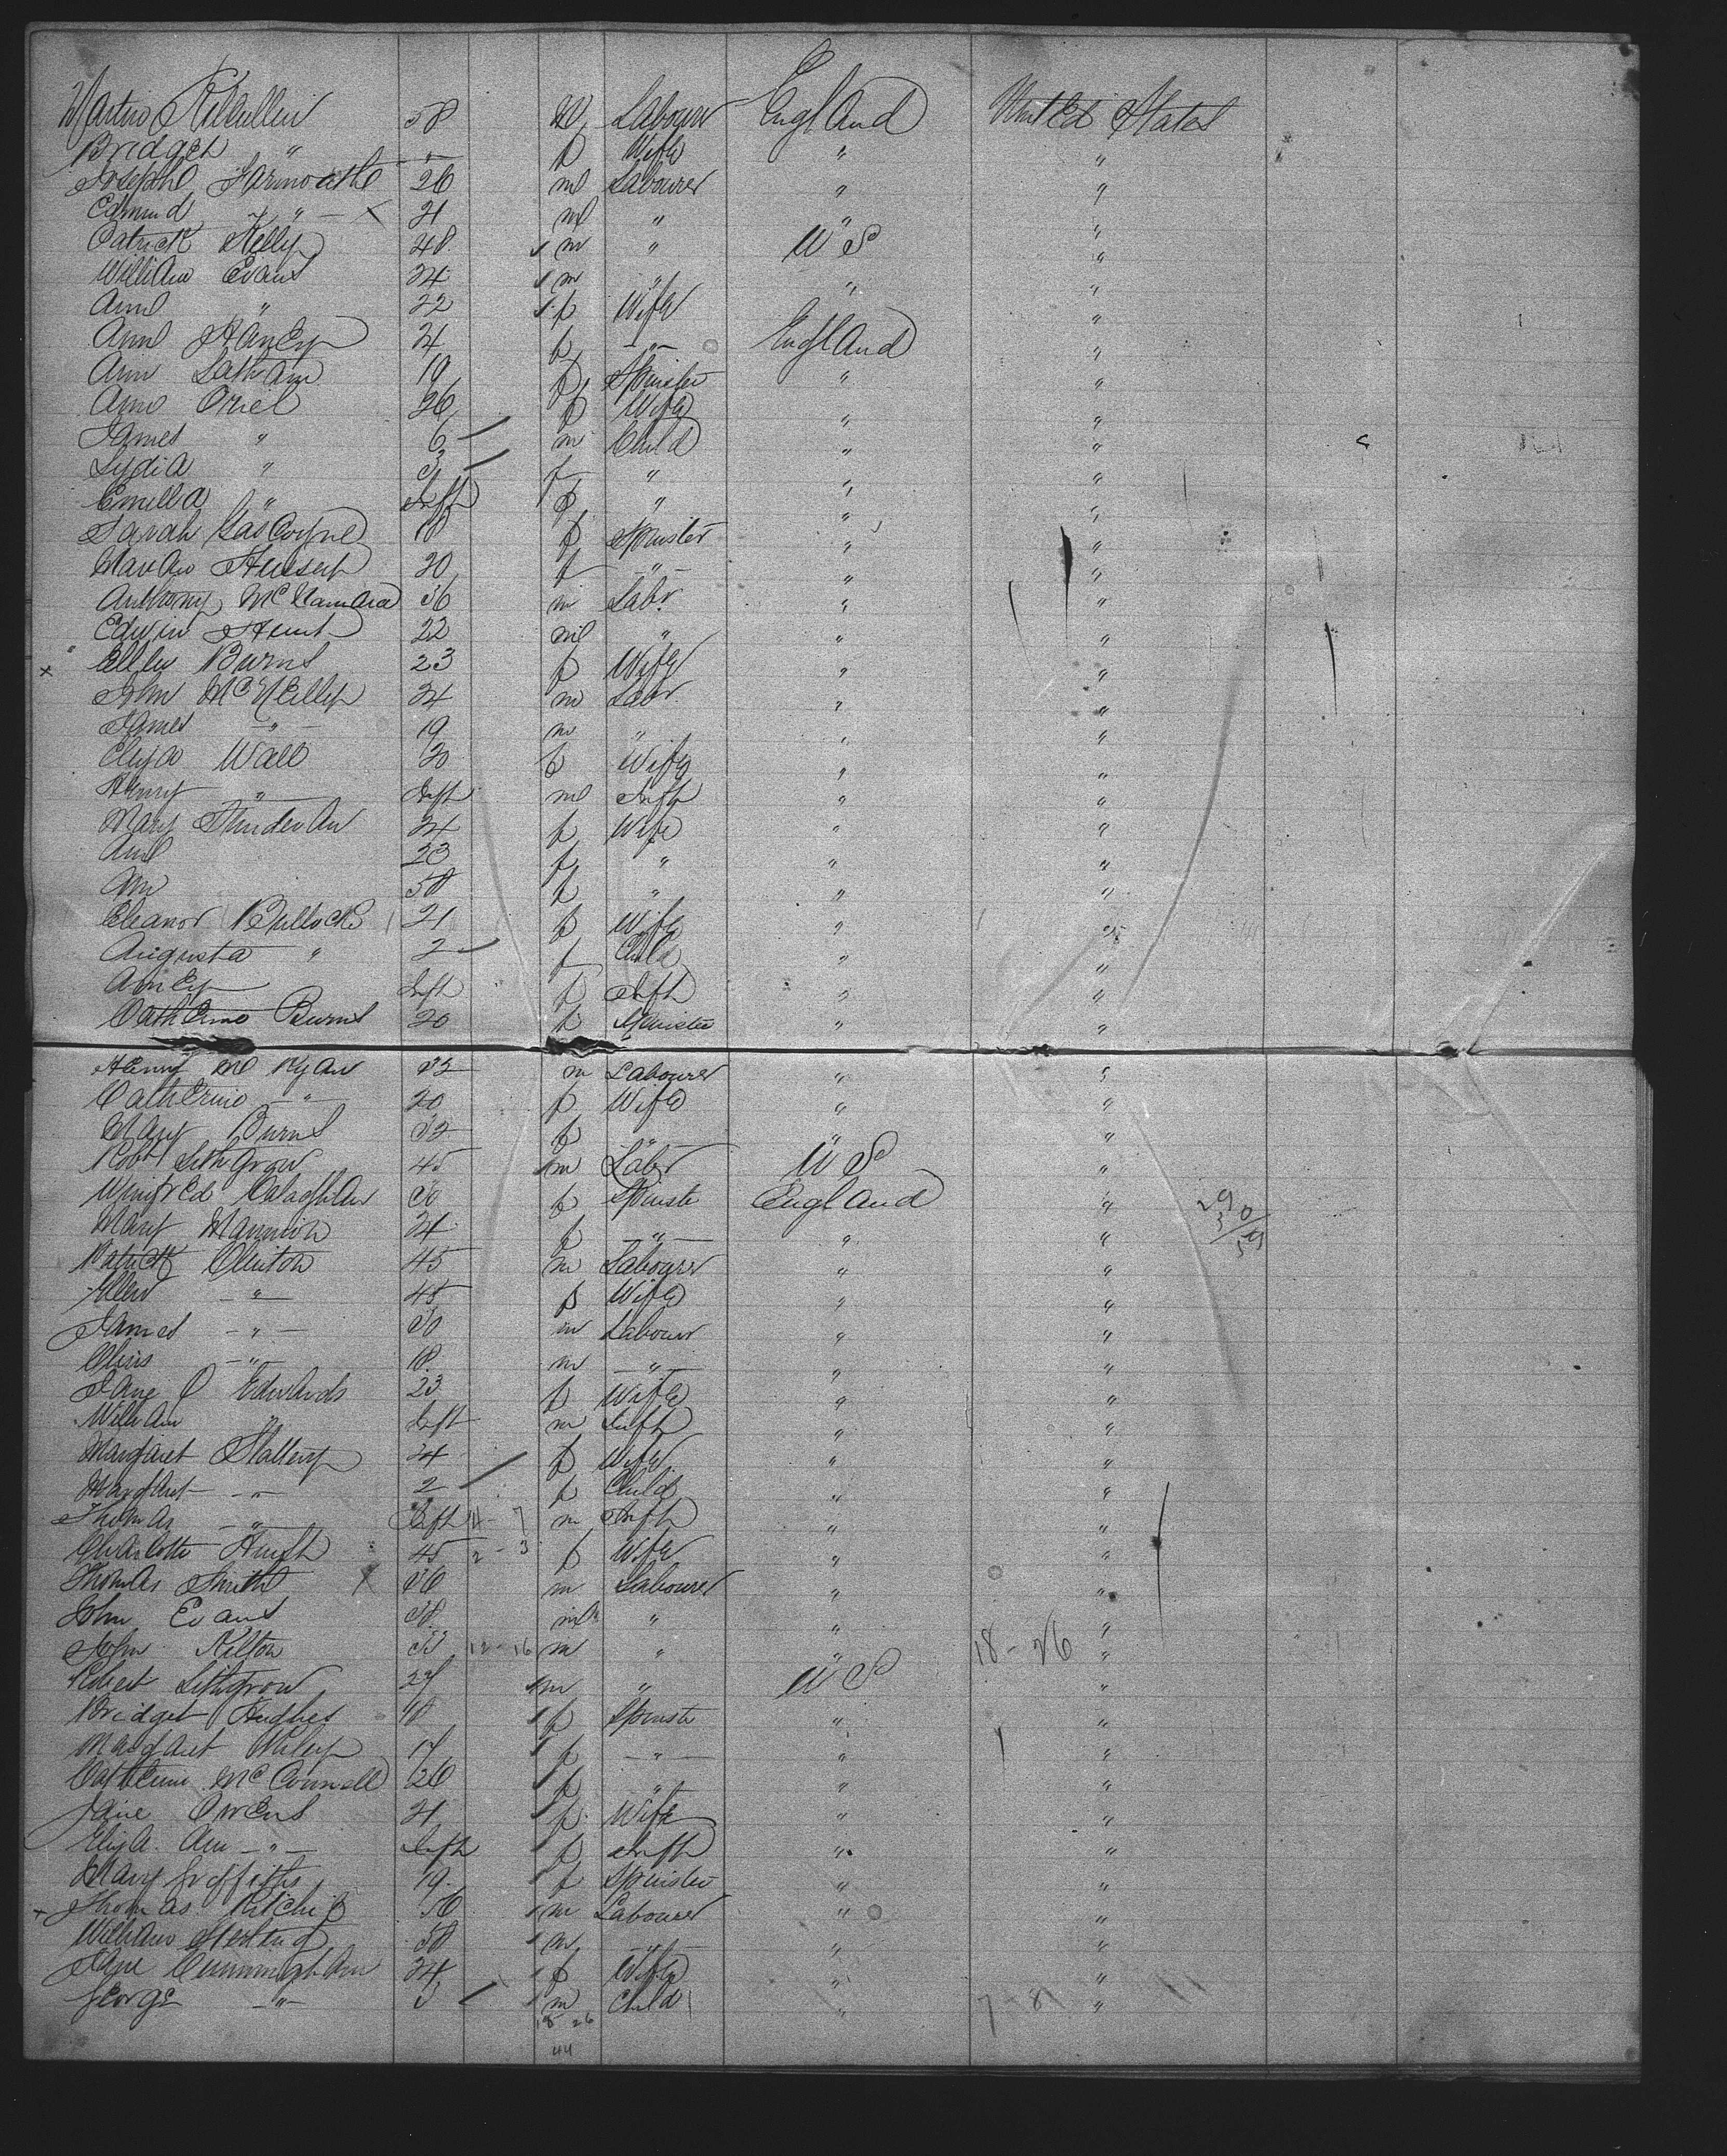 Martin Killcullen 58 m Labourer England United States
Bridget " " f Wife " "
Joseph 26 m Labourer " "
Edmund " X 21 m " " "
Patrick Kelly 48 1 m " U S "
William Evans 24 1 m " " "
Ann " 22 1 f Wife " "
Ann Haney 24 f " England "
Ann Latham 19 f Spinster " "
Ann Oriel 26 f Wife " "
James " 6 m Child " "
Lydia " 3 f " " "
Emilia " Inft f " " "
Sarah Gascoyne 18 f Spinster " "
Hussey 20 f " " "
Anthony McNamara 36 m Labr " "
Edwin Hunt 22 m " " "
x Ellen Burns 23 f Wife " "
John McNeilly 24 m Labr " "
James " 19 m " " "
Eliza Wall 20 f Wife " "
Henry " Inft m Inft " "
Mary 24 f Wife " "
Ann 23 f " " "
50 f " " "
Eleanor Bullock 21 f Wife " "
Augusta " 2 f Child " "
Inft f Inft " "
Catherine Burns 20 f Spinster " "
Henry Mc Ryan 32 m Labourer " "
Catherine " 20 f Wife " "
Mary Burns 32 f " " "
Robt Lithgrow 45 1 m Labr U S "
Winifred Calaghan 30 f Spinster England "
Mary Mannion 24 f " " "
Patrick Clinton 45 m Labourer " "
Ellen " 45 f Wife " "
James " 20 m Labourer " "
" 18 m " " "
Jane O Edwards 23 f Wife " "
William " Inft m Inft " "
Margaret Slattery 24 f Wife " "
Margaret " 2 f Child " "
Thomas " Inft 11 - 7 m Inft " "
Charlotte Hugh 45 2 - 3 f Wife " "
Thomas Smith X 36 m Labourer " "
John Evans 38 m " " "
John Kilton 12 - 16 m " " 18 - 26 "
Robert Lithgrow 27 1 m " U S "
Bridget Hughes 18 1 f Spinster " "
Margaret Wiley 17 1 f " " "
Catherine McConnell 26 1 f " " "
Jane Owens 21 1 f Wife " "
Eliza Ann " Inft 1 f Inft " "
Mary Griffiths 19 1 f Spinster " "
x Thomas Ritchie 36 1 m Labourer " "
William 50 1 m " " "
Jane Cunningham 24 1 f Wife " "
George " 3 1 m Child " 7 - 8 "
18 26
44